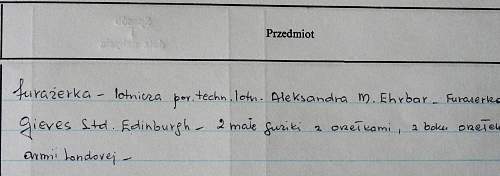 Przedmiot
furażerka – lotnicza por. techn. lotn. Aleksandra M. Ehrbar – Furażerka
Gieves Ltd. Edinburgh – 2 małe guziki z orzełkami, z boku orzełek
armii londovej –